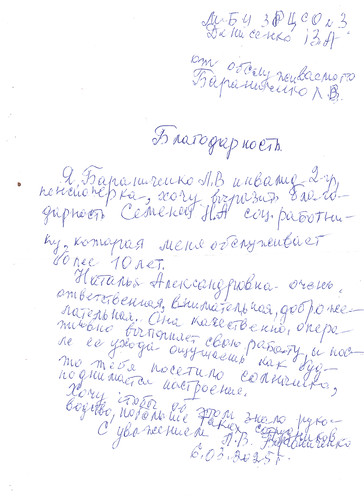 М БУ ЗРЦСО и З
Денисенко З А
от обслуживаемого
Бараниченко Л В.
Благодарность
Я, Бараниченко Л.В инвалид 2 гр,
пенсионерка, хочу выразить благо-
дарность Семеней Н.А соц. работни-
ку, которая меня обслуживает
более 10 лет.
Наталья Александровна очень
ответственная, внимательная, доброже-
лательная. Она качественно, опера-
тивно выполняет свою работу, и пос-
ле её ухода ощущаешь как буд-
то тебя посетило солнышко,
поднимается настроение.
Хочу чтобы об этом знало руко-
водство, побольше таких сотрудников
С уважением Л.В. Бараниченко
6.03.2025 г.